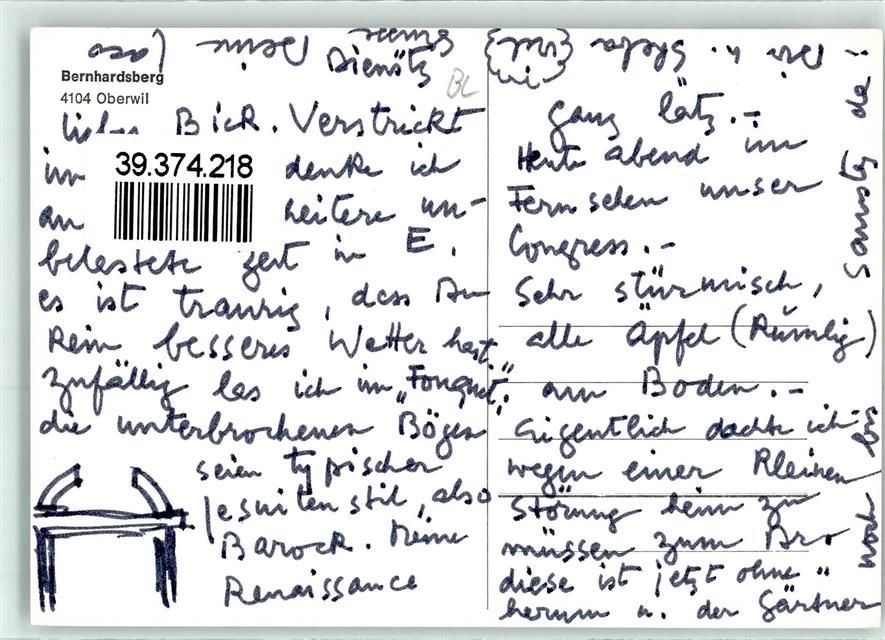 Bernhardsberg
4104 Oberwil
BL
Dienstg
lieber Bick. Verstrickt
im denke ich
an heitere un-
belastete zeit in E.
es ist traurig, dass Du
kein besseres Wetter hast
zufällig las ich im „Fouquet“
die unterbrochenen Bögen
seien typischer
Jesuitenstil, also
Barock. keine
Renaissance
39.374.218
ganz lätz.-
Heute abend im
Fernsehen unser
Congress.-
Sehr stürmisch,
alle Äpfel (Rümlig)
am Boden.-
Eigentlich dachte ich
wegen einer kleinen
Störung heim zu
müssen zum Bro
diese ist jetzt ohne
herum u. der Gärtner
noch bis
Samstg da!
Dir u.
Deine